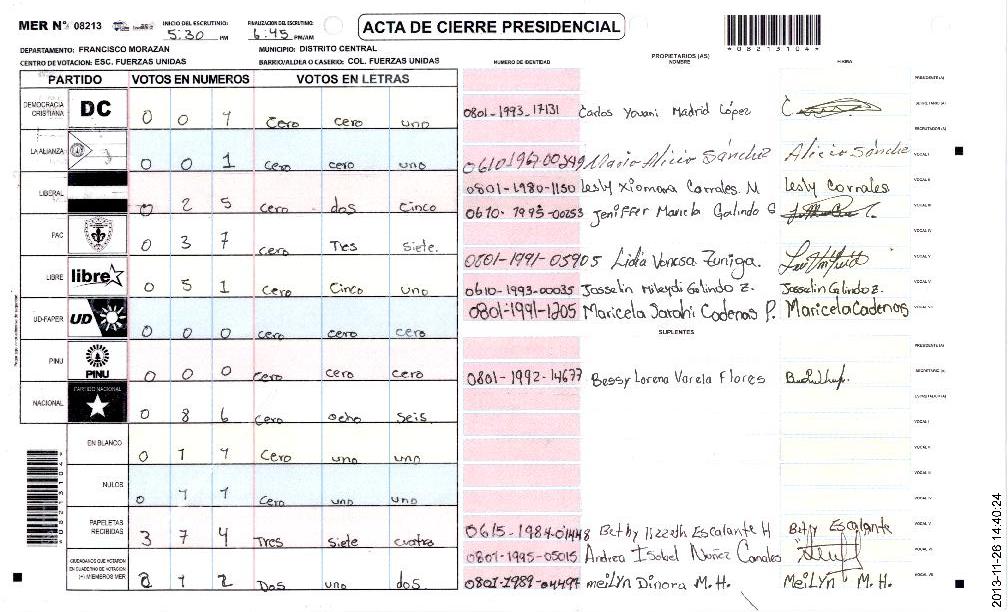 MER Nº 08213
INICIO DEL ESCRUTINIO: 5:30 PM
FINALIZACION DEL ESCRUTINIO: 6:45 PM/AM
ACTA DE CIERRE PRESIDENCIAL
*08213104*
DEPARTAMENTO: FRANCISCO MORAZAN
MUNICIPIO: DISTRITO CENTRAL
CENTRO DE VOTACION: ESC. FUERZAS UNIDAS
BARRIO/ALDEA O CASERIO: COL. FUERZAS UNIDAS
NUMERO DE IDENTIDAD
PROPIETARIOS (AS)
NOMBRE
FIRMA
PARTIDO VOTOS EN NUMEROS VOTOS EN LETRAS
DEMOCRACIA CRISTIANA DC 0 0 1 Cero cero uno
LA ALIANZA 0 0 1 cero cero uno
LIBERAL 0 2 5 cero dos Cinco
PAC 0 3 7 cero Tres siete.
LIBRE libre 0 5 1 Cero Cinco uno
UD-FAPER UD 0 0 0 cero cero cero
PINU PINU 0 0 0 Cero cero cero
NACIONAL PARTIDO NACIONAL 0 8 6 Cero ocho Seis
EN BLANCO 0 1 1 Cero uno uno
NULOS 0 1 1 Cero uno uno
PAPELETAS RECIBIDAS 3 7 4 Tres siete cuatro
CIUDADANOS QUE VOTARON EN CUADERNO DE VOTACION (+) MIEMBROS MER 2 1 2 Dos uno dos
PRESIDENTE(A)
0801-1993-17131 Carlos Yovani Madrid López SECRETARIO (A)
ESCRUTADOR (A)
0610196700249 Maria Alicia Sánchez Alicia Sánchez VOCAL I
0801-1980-1150 Lesly Xiomara Corrales M Lesly Corrales VOCAL II
0610-1995-00253 Jeniffer Maricela Galindo G VOCAL III
VOCAL IV
0801-1991-05905 Lidia Vanesa Zuniga. VOCAL V
0610-1993-00035 Josselin Mileydi Galindo Z. Josselin Galindo Z.
0801-1991-1205 Maricela Sarahi Cadenas P. Maricela Cadenas
SUPLENTES
PRESIDENTE (A)
0801-1992-14677 Bessy Lorena Varela Flores SECRETARIO (A)
ESCRUTADOR (A)
VOCAL I
VOCAL II
VOCAL III
VOCAL IV
0615-1984-01448 Bethy Lizzeth Escalante H Bethy Escalante VOCAL V
0801-1995-05015 Andrea Isabel Nuñez Canales
0801-1989-04497 meiLYn Dinora M.H. MeiLyn M. H.
2013-11-26 14:40:24